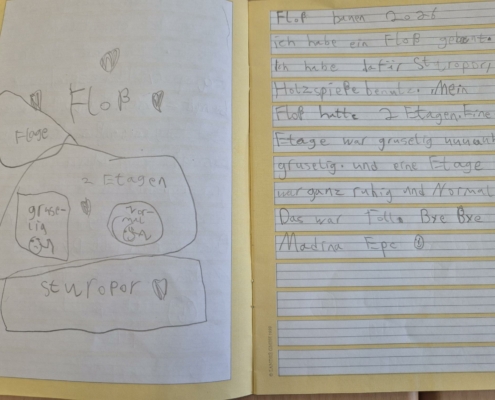 Floß
Flage
2 Etagen
gruse-
lig
nor-
mal
Sturopor
Floß bauen 2025
ich habe ein Floß gebaut.
Ich habe dafür Sturopor,
Holzspieße benutz. Mein
Floß hatte 2 Etagen. Eine
Etage war gruselig
gruselig. und eine Etage
war ganz ruhig und Normal
Das war Toll. Bye Bye
Madina Epe